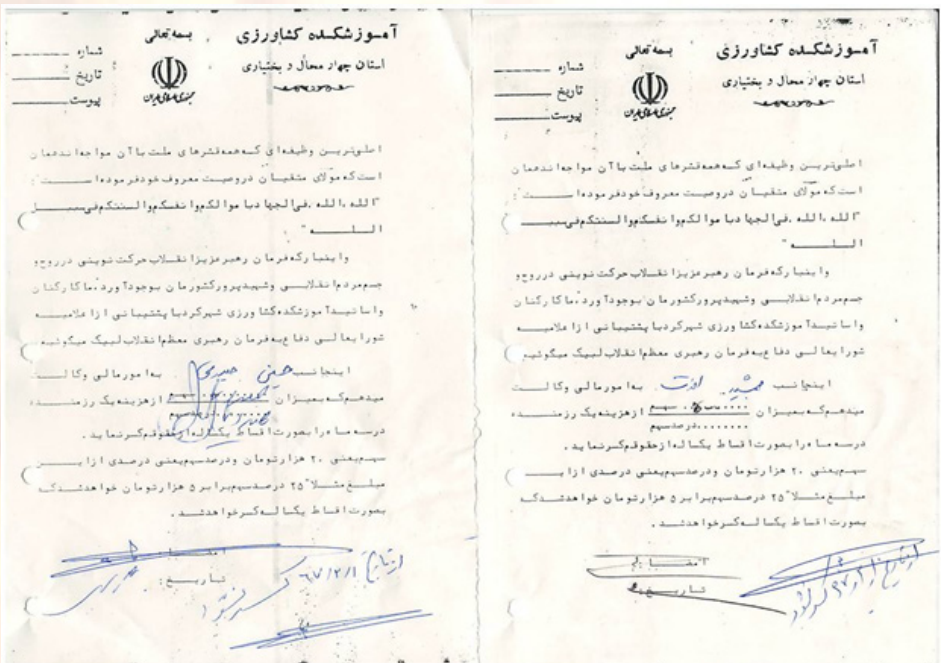 آموزشکده کشاورزی
استان چهار محال و بختیاری
بسمه تعالی
جمهوری اسلامی ایران
شماره
تاریخ
پیوست
اصلی‌ترین وظیفه‌ای که همه قشرهای ملت با آن مواجه‌اند همان
است که مولای متقیان در وصیت معروف خود فرموده است :
"الله ، الله ، فی الجهاد با موالکم وانفسکم والسنتکم فی سبیل
الله "
و اینبار که فرمان رهبر عزیز انقلاب حرکت نوینی در روح و
جسم مردم انقلابی و شهید پرور کشورمان بوجود آورد ، ما کارکنان
و اساتید آموزشکده کشاورزی شهرکرد با پشتیبانی از اعلامیه
شورایعالی دفاع به فرمان رهبری معظم انقلاب لبیک میگوئیم
اینجانب
به امور مالی وکالت
میدهم که بمیزان
سهم
از هزینه یک رزمنده
درسه ماه را بصورت اقساط یکساله از حقوقم کسر نماید .
سهم یعنی ۲۰ هزار تومان و درصد سهم یعنی درصدی از این
مبلغ مثلا" ۲۵ درصد سهم برابر ۵ هزار تومان خواهد شد که
بصورت اقساط یکساله کسر خواهد شد .
امضاء :
تاریخ :
از تاریخ ۶۷/۲/۱ کسر شود
آموزشکده کشاورزی
استان چهار محال و بختیاری
بسمه تعالی
جمهوری اسلامی ایران
شماره
تاریخ
پیوست
اصلی‌ترین وظیفه‌ای که همه قشرهای ملت با آن مواجه‌اند همان
است که مولای متقیان در وصیت معروف خود فرموده است :
"الله ، الله ، فی الجهاد با موالکم وانفسکم والسنتکم فی سبیل
الله "
و اینبار که فرمان رهبر عزیز انقلاب حرکت نوینی در روح و
جسم مردم انقلابی و شهید پرور کشورمان بوجود آورد ، ما کارکنان
و اساتید آموزشکده کشاورزی شهرکرد با پشتیبانی از اعلامیه
شورایعالی دفاع به فرمان رهبری معظم انقلاب لبیک میگوئیم
اینجانب جمشید
به امور مالی وکالت
میدهم که بمیزان
سهم
درصد سهم
از هزینه یک رزمنده
درسه ماه را بصورت اقساط یکساله از حقوقم کسر نماید .
سهم یعنی ۲۰ هزار تومان و درصد سهم یعنی درصدی از این
مبلغ مثلا" ۲۵ درصد سهم برابر ۵ هزار تومان خواهد شد که
بصورت اقساط یکساله کسر خواهد شد .
امضاء :
تاریخ :